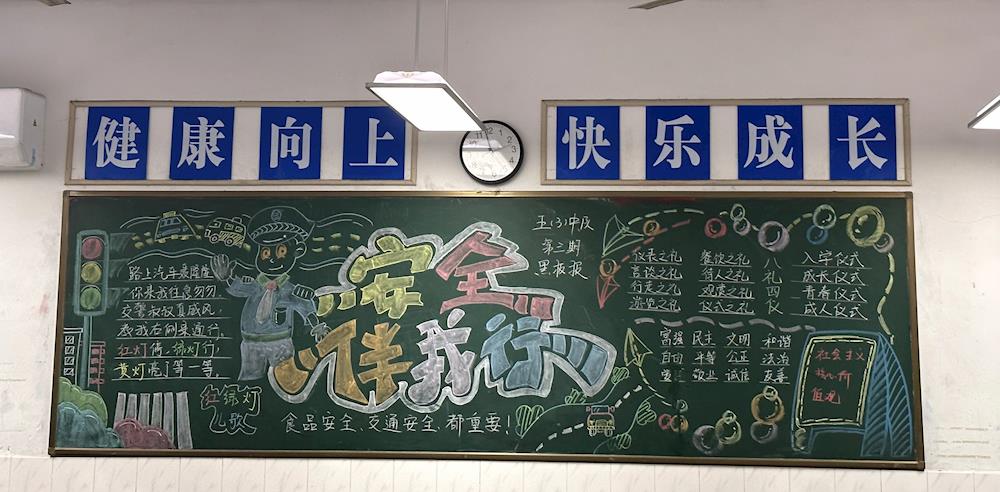 健康向上
快乐成长
五(3)中队
第二期
黑板报
安全
伴我行
路上汽车
你来我往急匆匆
交警叔叔真威风
红灯停 绿灯行
黄灯亮了等一等
红绿灯
儿歌
食品安全、交通安全,都重要!
八礼四仪
仪表之礼 餐饮之礼
言谈之礼 待人之礼
行走之礼 观赏之礼
游览之礼 仪式之礼
入学仪式
成长仪式
青春仪式
成人仪式
富强 民主 文明 和谐
自由 平等 公正 法治
爱国 敬业 诚信 友善
社会主义
核心价
值观